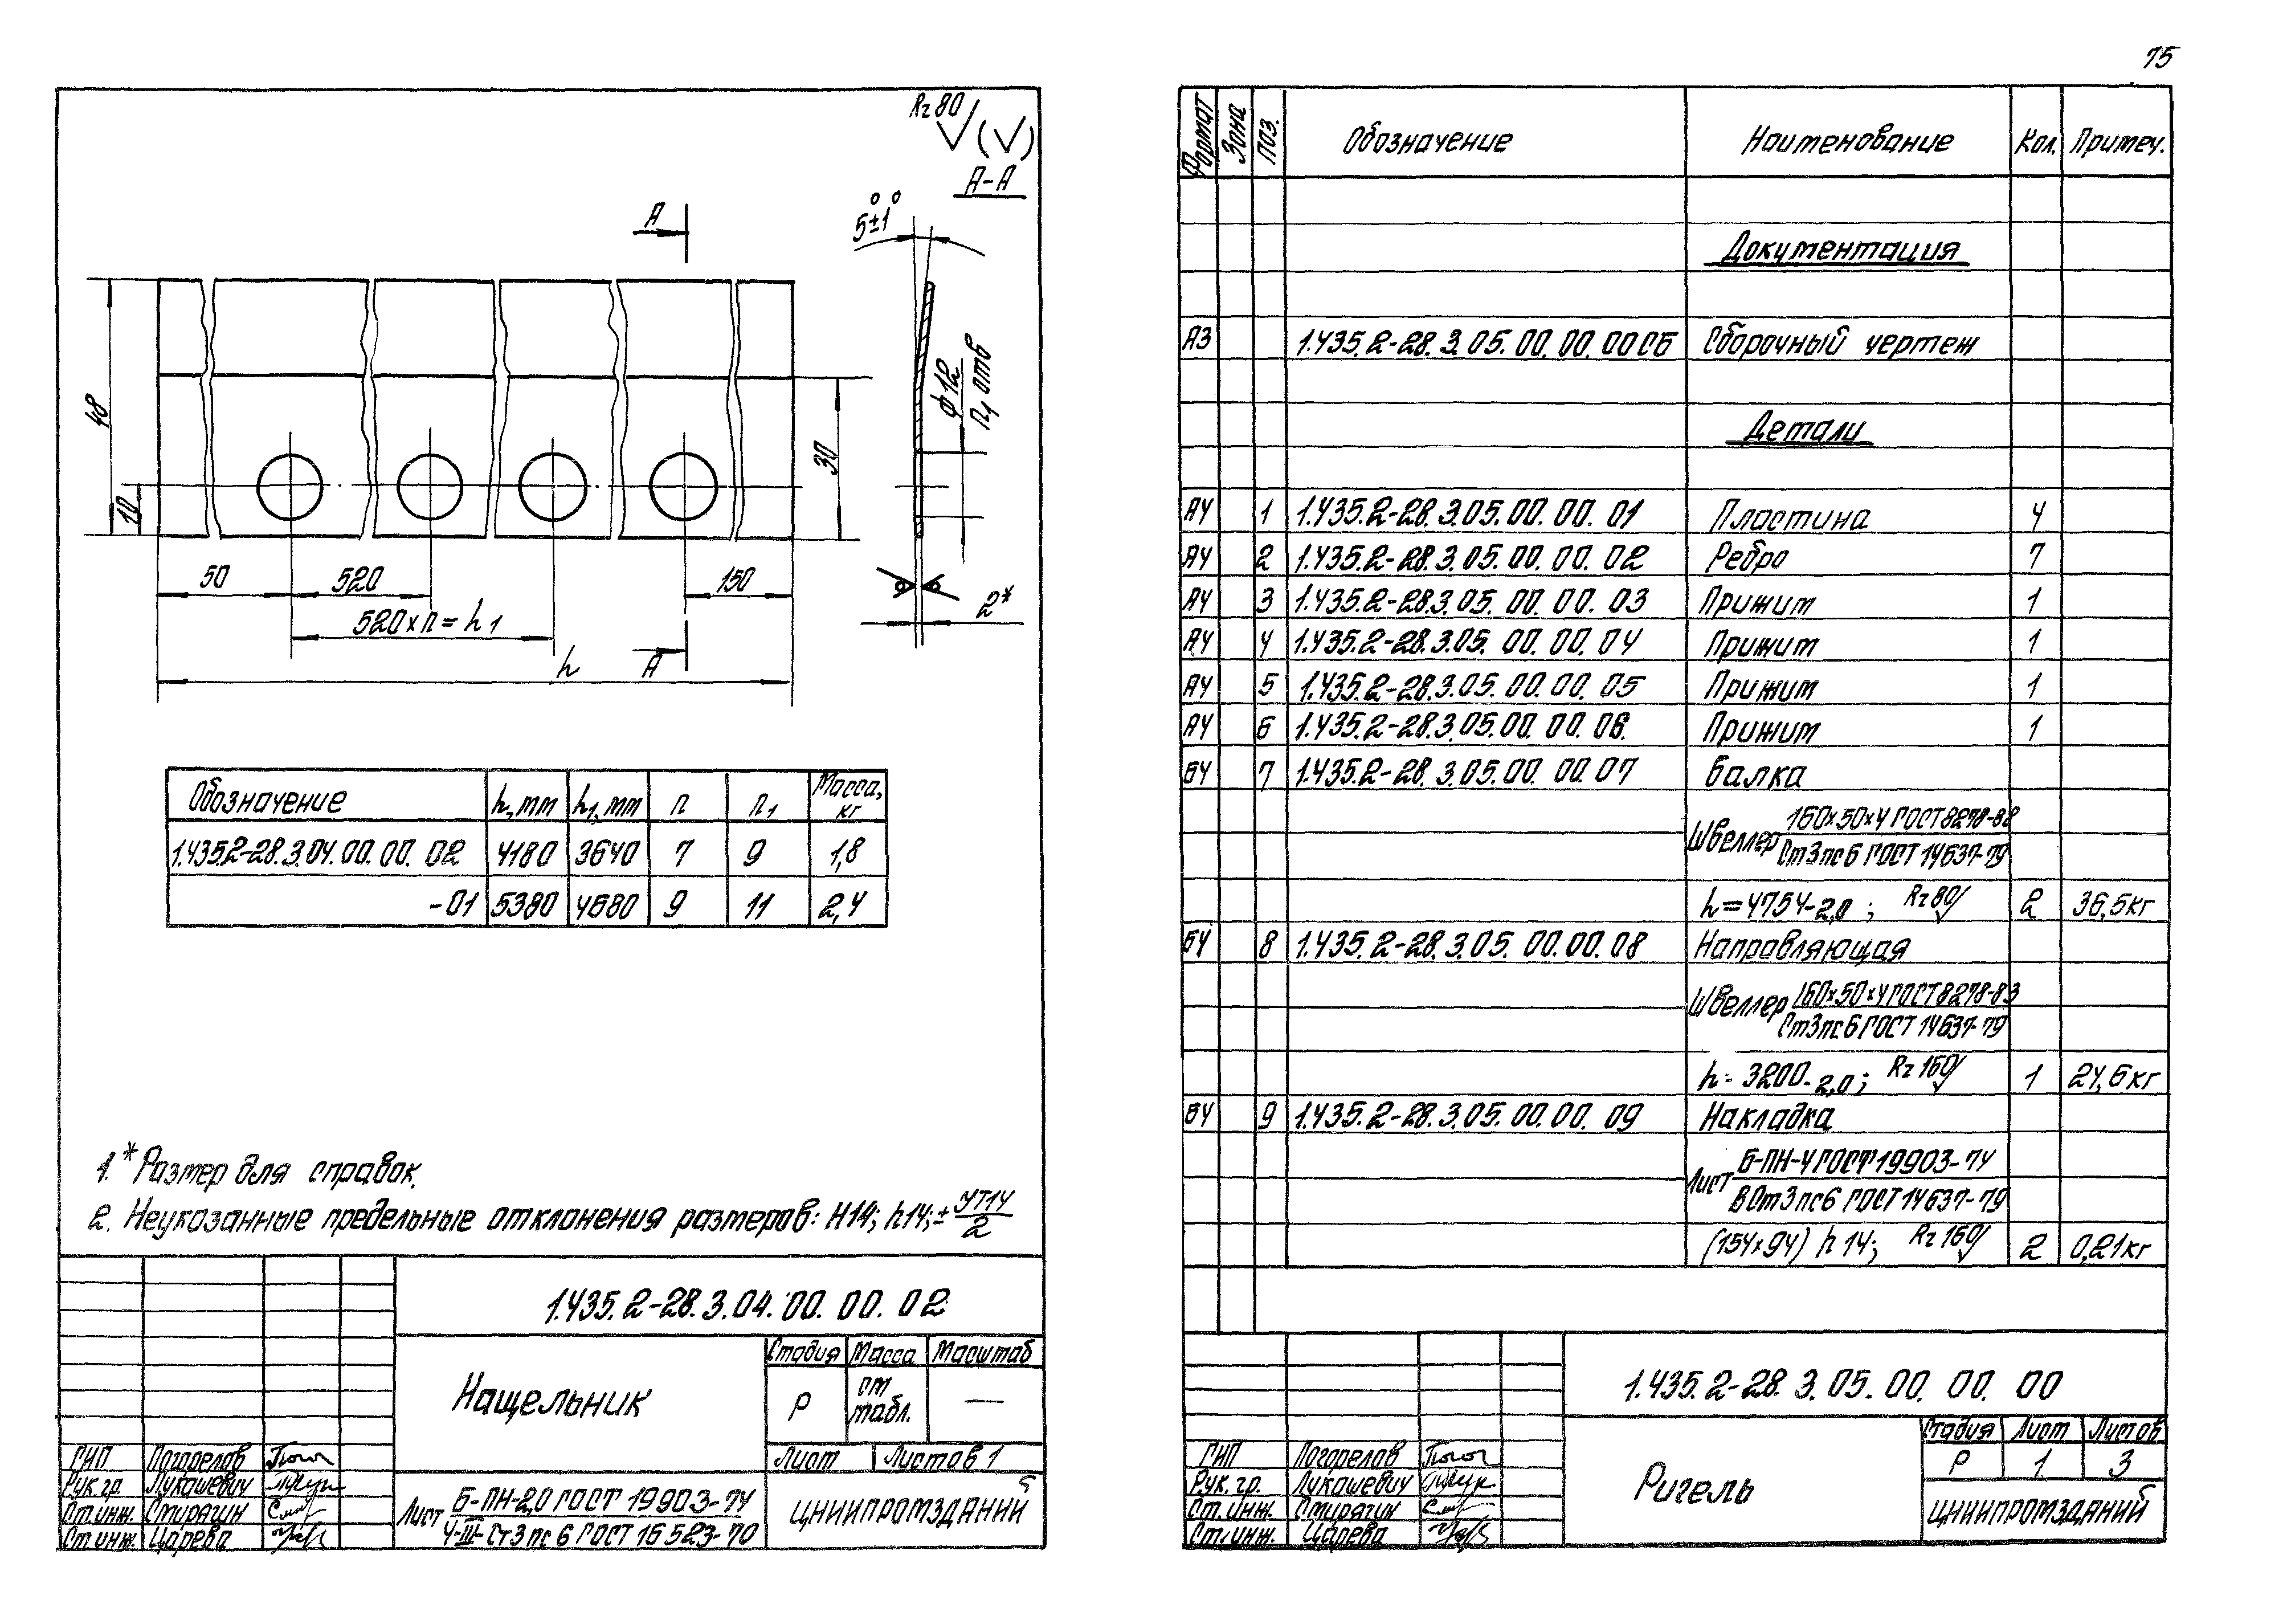 75
Rz 80 (√)
А-А
А
5°±1°
48
10
30
ϕ12
n1 отв
50
520
150
520×n=h1
2*
А
h
Обозначение h, мм h1, мм n n1 Масса, кг
1.435.2-28.3.04.00.00.02 4180 3640 7 9 1,8
-01 5380 4680 9 11 2,4
1.* Размер для справок.
2. Неуказанные предельные отклонения размеров: H14; h14; ± УТ14/2
1.435.2-28.3.04.00.00.02
Нащельник
Стадия Масса Масштаб
Р см табл. —
Лист Листов 1
ГИП Погорелов
Рук. гр. Лукашевич
Ст.инж. Смирягин
Ст.инж. Царева
Лист Б-ПН-2,0 ГОСТ 19903-74
4-III-Ст3пс6 ГОСТ 16523-70
ЦНИИПРОМЗДАНИЙ
Формат Зона Поз. Обозначение Наименование Кол. Примеч.
Документация
А3 1.435.2-28.3.05.00.00.00СБ Сборочный чертеж
Детали
А4 1 1.435.2-28.3.05.00.00.01 Пластина 4
А4 2 1.435.2-28.3.05.00.00.02 Ребро 7
А4 3 1.435.2-28.3.05.00.00.03 Прижим 1
А4 4 1.435.2-28.3.05.00.00.04 Прижим 1
А4 5 1.435.2-28.3.05.00.00.05 Прижим 1
А4 6 1.435.2-28.3.05.00.00.06. Прижим 1
БЧ 7 1.435.2-28.3.05.00.00.07 Балка
Швеллер 160×50×4 ГОСТ 8278-83
Ст3пс6 ГОСТ 14637-79
h=4754-2,0; Rz80 2 36,5кг
БЧ 8 1.435.2-28.3.05.00.00.08 Направляющая
Швеллер 160×50×4 ГОСТ 8278-83
Ст3пс6 ГОСТ 14637-79
h=3200-2,0; Rz160 1 24,6кг
БЧ 9 1.435.2-28.3.05.00.00.09 Накладка
Лист Б-ПН-4 ГОСТ 19903-74
ВСт3пс6 ГОСТ 14637-79
(154×94) h14; Rz160 2 0,21кг
1.435.2-28.3.05.00.00.00
Ригель
Стадия Лист Листов
Р 1 3
ГИП Погорелов
Рук. гр. Лукашевич
Ст.инж. Смирягин
Ст.инж. Царева
ЦНИИПРОМЗДАНИЙ